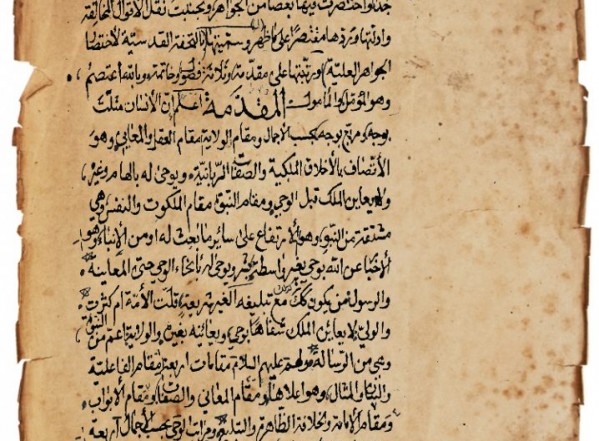 جدا واختصرت فيها بعضا من الجواهر وحذفت نقل الأقوال المخالفة
وادلتها وردها مقتصرا على ما ظهر وسميتها بالتحفة القدسية لاختصار
الجواهر العلية ورتبتها على مقدمة وثلاثة فصول وخاتمة وبالله اعتصم
وهو المؤمل والمأمول المقدمة اعلم ان الأنسان مثلث
بوجه ومربع بوجه بحسب الأجمال ومقام الولاية مقام العقل والمعاني وهو
الأتصاف بالأخلاق الملكية والصفات الربانية ويوحى له بالهام وغيره
ولا يعاين الملك قبل الوحي ومقام النبوة مقام الملكوت والنفس وهي
مشتقة من النبو وهو الأرتفاع على ساير ما بعث له او من الإنباء وهو
الأخبار عن الله بوحي بغير واسطة بشر ويوحى له بأنحاء الوحي حتى المعاينة
والرسالة من يكون كك مع تبليغه الغير شريعة قلت الأمة ام كثرت
والولي لا يعاين الملك شفاها بوحي ويعاينه بغيره والولاية اعم من النبوة
وهي من الرسالة ولهم عليهم السلام مقامات اربعة مقام الفاعلية
والبناء والمثال وهو اعلاها ومقام المعاني والصفات ومقام الأبواب
ومقام الأمامة والخلافة الظاهرة والتبليغ ومراتب الوحي بحسب الأجمال اربعة